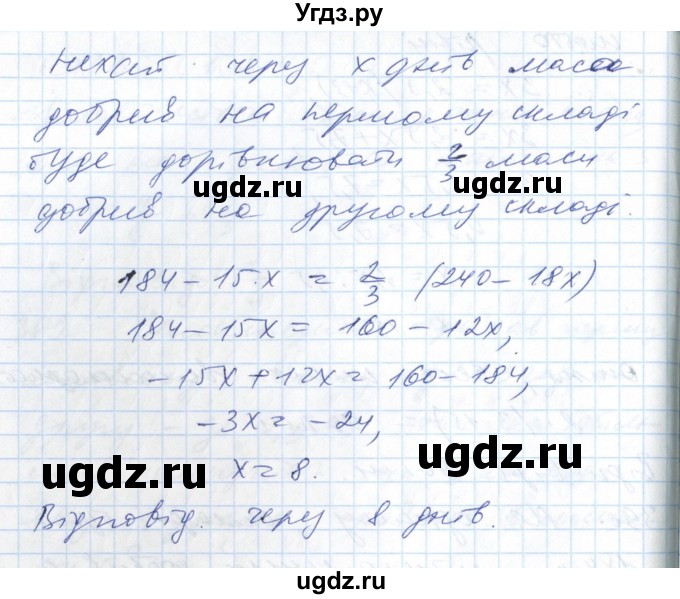 Угдз.ру
Нехай через x днів маса
добрив на першому складі
буде дорівнювати 2/3 маси
ugdz.ru ugdz.ru
добрив на другому складі.
184 - 15·x = 2/3 (240 - 18x)
184 - 15x = 160 - 12x,
-15x + 12x = 160 - 184,
-3x = -24,
ugdz.ru ugdz.ru
x = 8.
Відповід. через 8 днів.
ugdz.ru